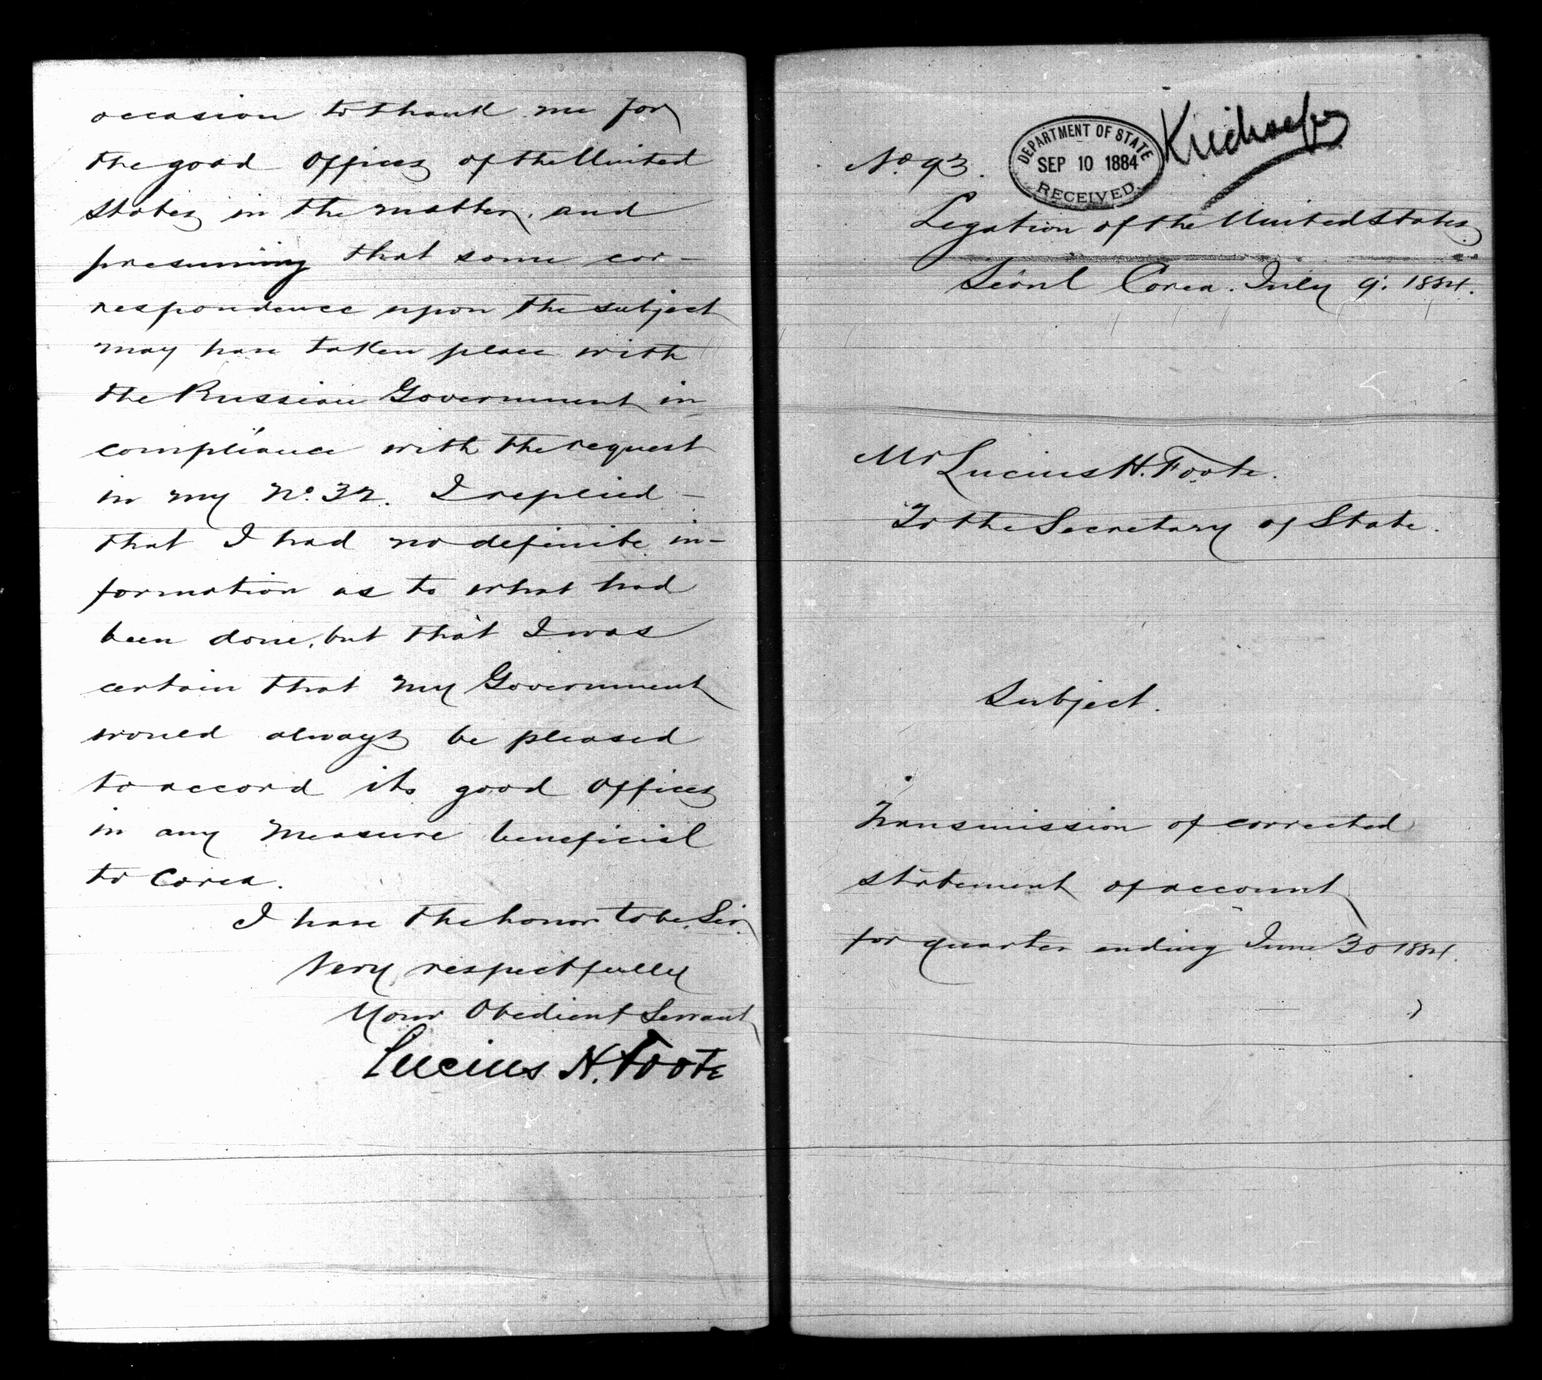 occasion to thank me for
the good Offices of the United
States in the matter, and
presuming that some cor-
respondence upon the subject
may have taken place with
the Russian Government in
compliance with the request
in my No. 32. I replied -
that I had no definite in-
formation as to what had
been done, but that I was
certain that my Government
would always be pleased
to accord its good Offices
in any Measure beneficial
to Corea.
I have the honor to be, Sir,
Very respectfully
Your Obedient Servant
Lucius H. Foote
No. 93.
DEPARTMENT OF STATE
SEP 10 1884
RECEIVED.
Legation of the United States
Séoul Corea. July 9. 1884.
Mr Lucius H. Foote.
To the Secretary of State.
Subject.
Transmission of corrected
statement of account
for quarter ending June 30 1884.